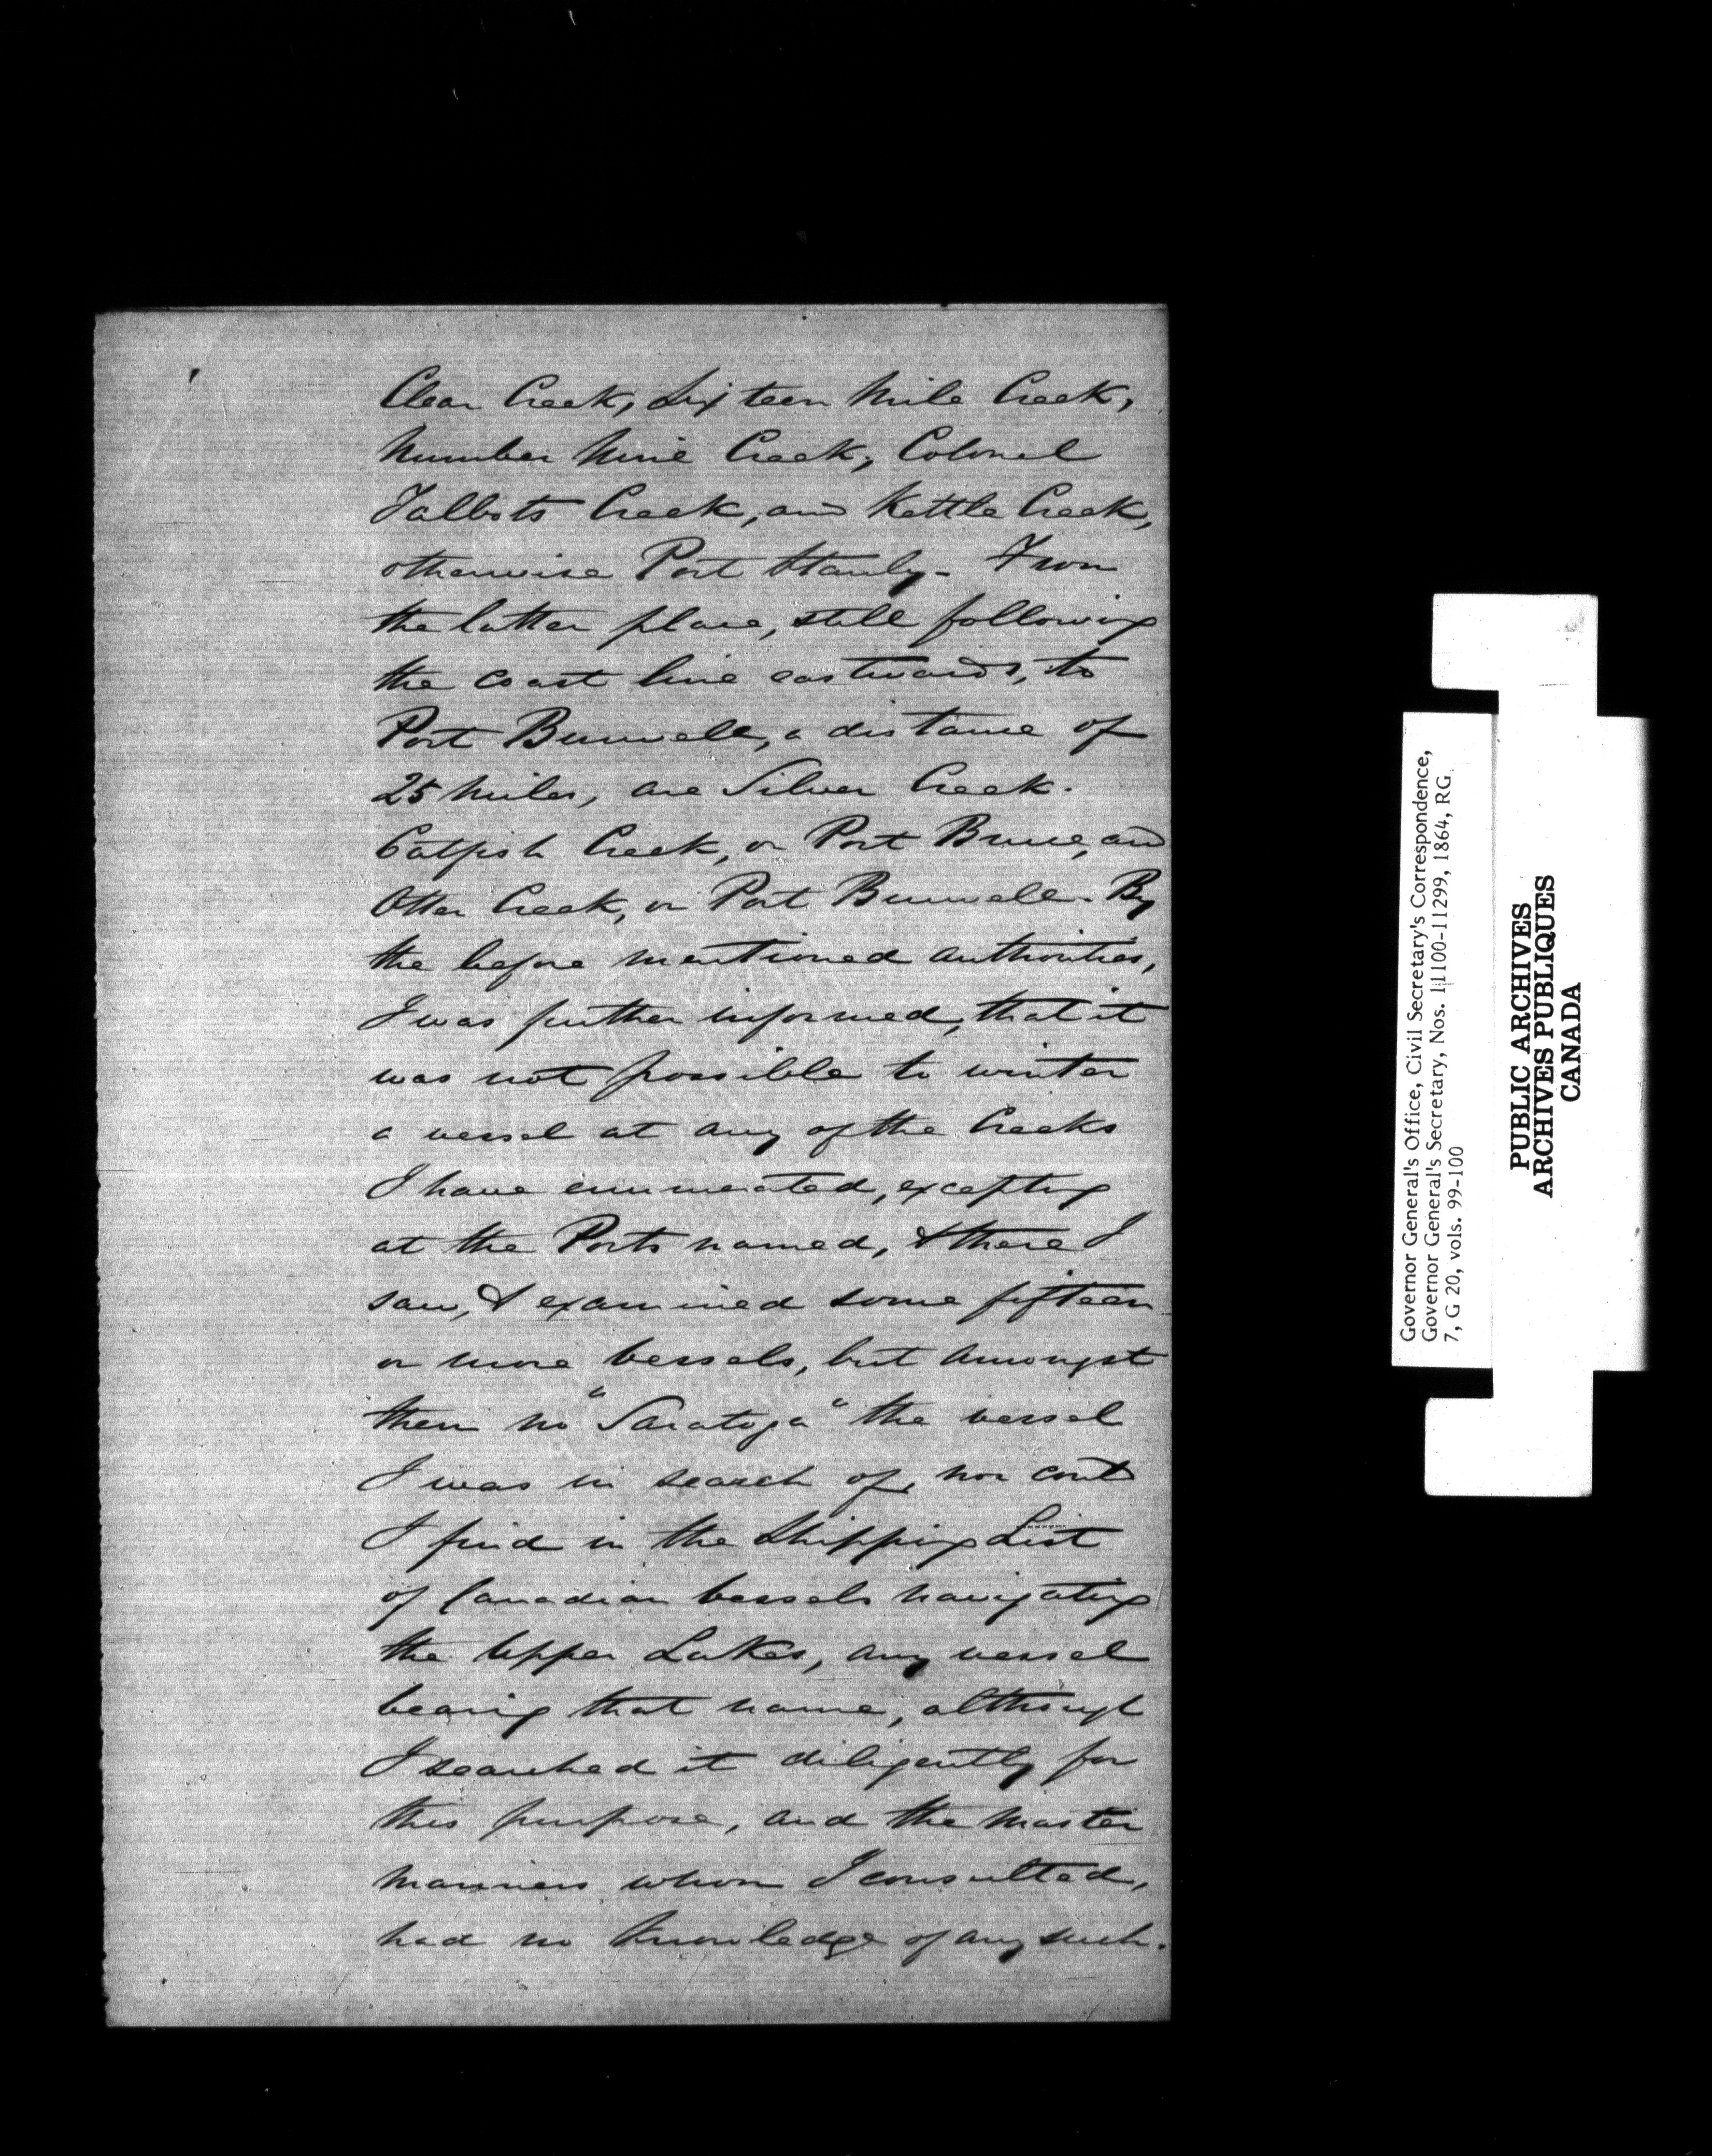 Clear Creek, Sixteen Mile Creek,
Number Nine Creek, Colonel
Talbots Creek, and Kettle Creek,
otherwise Port Stanly - From
the latter place, still following
the coast line eastwards, to
Port Burwell, a distance of
25 miles, are Silver Creek.
Catfish Creek, or Port Bruce, and
Otter Creek, or Port Burwell. By
the before mentioned authorities,
I was further informed, that it
was not possible to winter
a vessel at any of the Creeks
I have enumerated, excepting
at the Ports named, & there I
saw, & examined some fifteen
or more vessels, but amongst
them no "Saratoga" the vessel
I was in search of, nor could
I find in the Shipping List
of Canadian vessels navigating
the Upper Lakes, any vessel
bearing that name, although
I searched it diligently for
this purpose, and the master
mariners whom I consulted,
had no knowledge of any such.
Governor General's Office, Civil Secretary's Correspondence,
Governor General's Secretary, Nos. 11100-11299, 1864, RG
7, G 20, vols. 99-100
PUBLIC ARCHIVES
ARCHIVES PUBLIQUES
CANADA